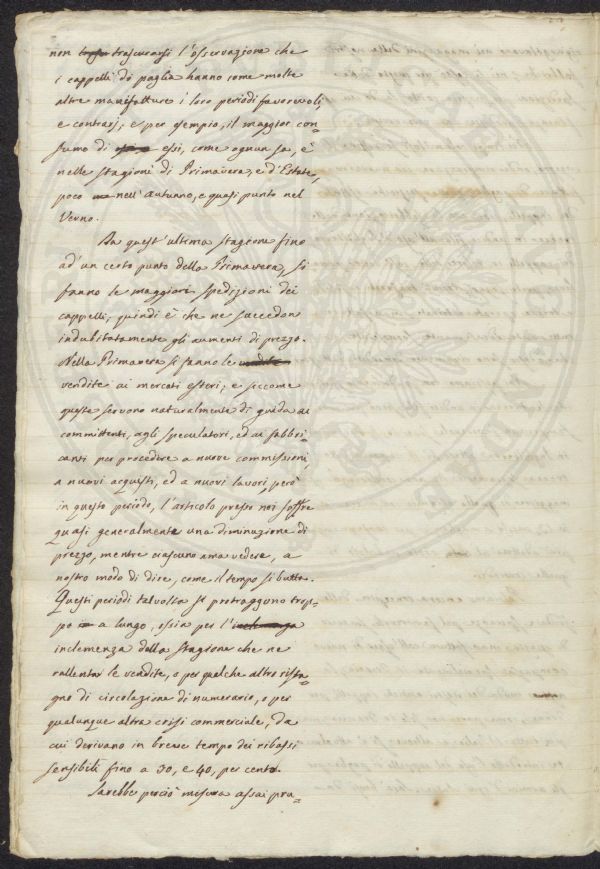 non trascurarsi l'osservazione che
i cappelli di paglia hanno come molte
altre manifatture i loro periodi favorevoli,
e contrarj; e per esempio, il maggior con-
sumo di essi, come ognun sa, è
nelle stagioni di Primavera, e d'Estate,
poco nell'Autunno, e quasi punto nel
Verno.
In quest'ultima stagione fino
ad un certo punto della Primavera, si
fanno le maggiori spedizioni dei
cappelli; quindi è che ne succedon
indubitatamente gli aumenti di prezzo.
Nella Primavera si fanno le
vendite ai mercati esteri; e siccome
queste servono naturalmente di guida ai
committenti, agli speculatori, ed ai fabbri-
canti per procedere a nuove commissioni,
a nuovi acquisti, ed a nuovi lavori, però
in questo periodo, l'articolo presso noi soffre
quasi generalmente una diminuzione di
prezzo, mentre ciascuno ama vedere, a
nostro modo di dire, come il tempo si butta.
Questi periodi talvolta si protraggono trop-
po a lungo, ossia per l'
inclemenza della stagione che ne
rallenta le vendite, o per qualche altro rista-
gno di circolazione di numerario, o per
qualunque altra crisi commerciale, da
cui derivano in breve tempo dei ribassi
sensibili fino a 30, e 40, per cento.
Sarebbe perciò misura assai pru-